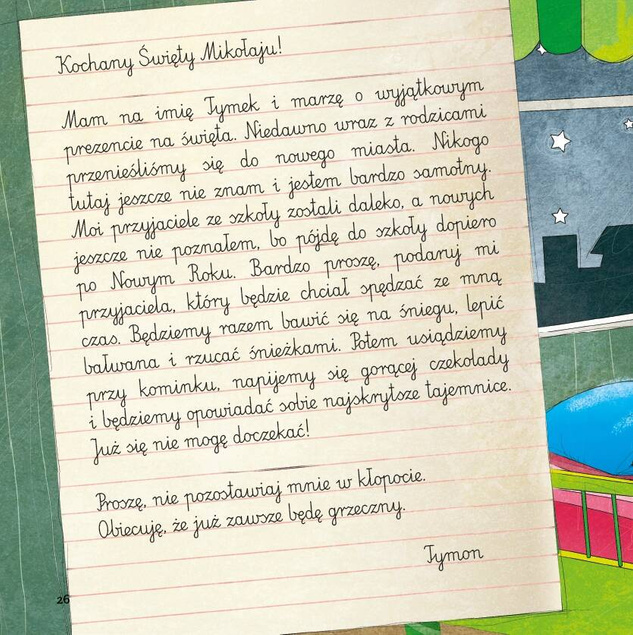 Kochany Święty Mikołaju!
Mam na imię Tymek i marzę o wyjątkowym
prezencie na święta. Niedawno wraz z rodzicami
przenieśliśmy się do nowego miasta. Nikogo
tutaj jeszcze nie znam i jestem bardzo samotny.
Moi przyjaciele ze szkoły zostali daleko, a nowych
jeszcze nie poznałem, bo pójdę do szkoły dopiero
po Nowym Roku. Bardzo proszę, podaruj mi
przyjaciela, który będzie chciał spędzać ze mną
czas. Będziemy razem bawić się na śniegu, lepić
bałwana i rzucać śnieżkami. Potem usiądziemy
przy kominku, napijemy się gorącej czekolady
i będziemy opowiadać sobie najskrytsze tajemnice.
Już się nie mogę doczekać!
Proszę, nie pozostawiaj mnie w kłopocie.
Obiecuję, że już zawsze będę grzeczny.
Tymon
26